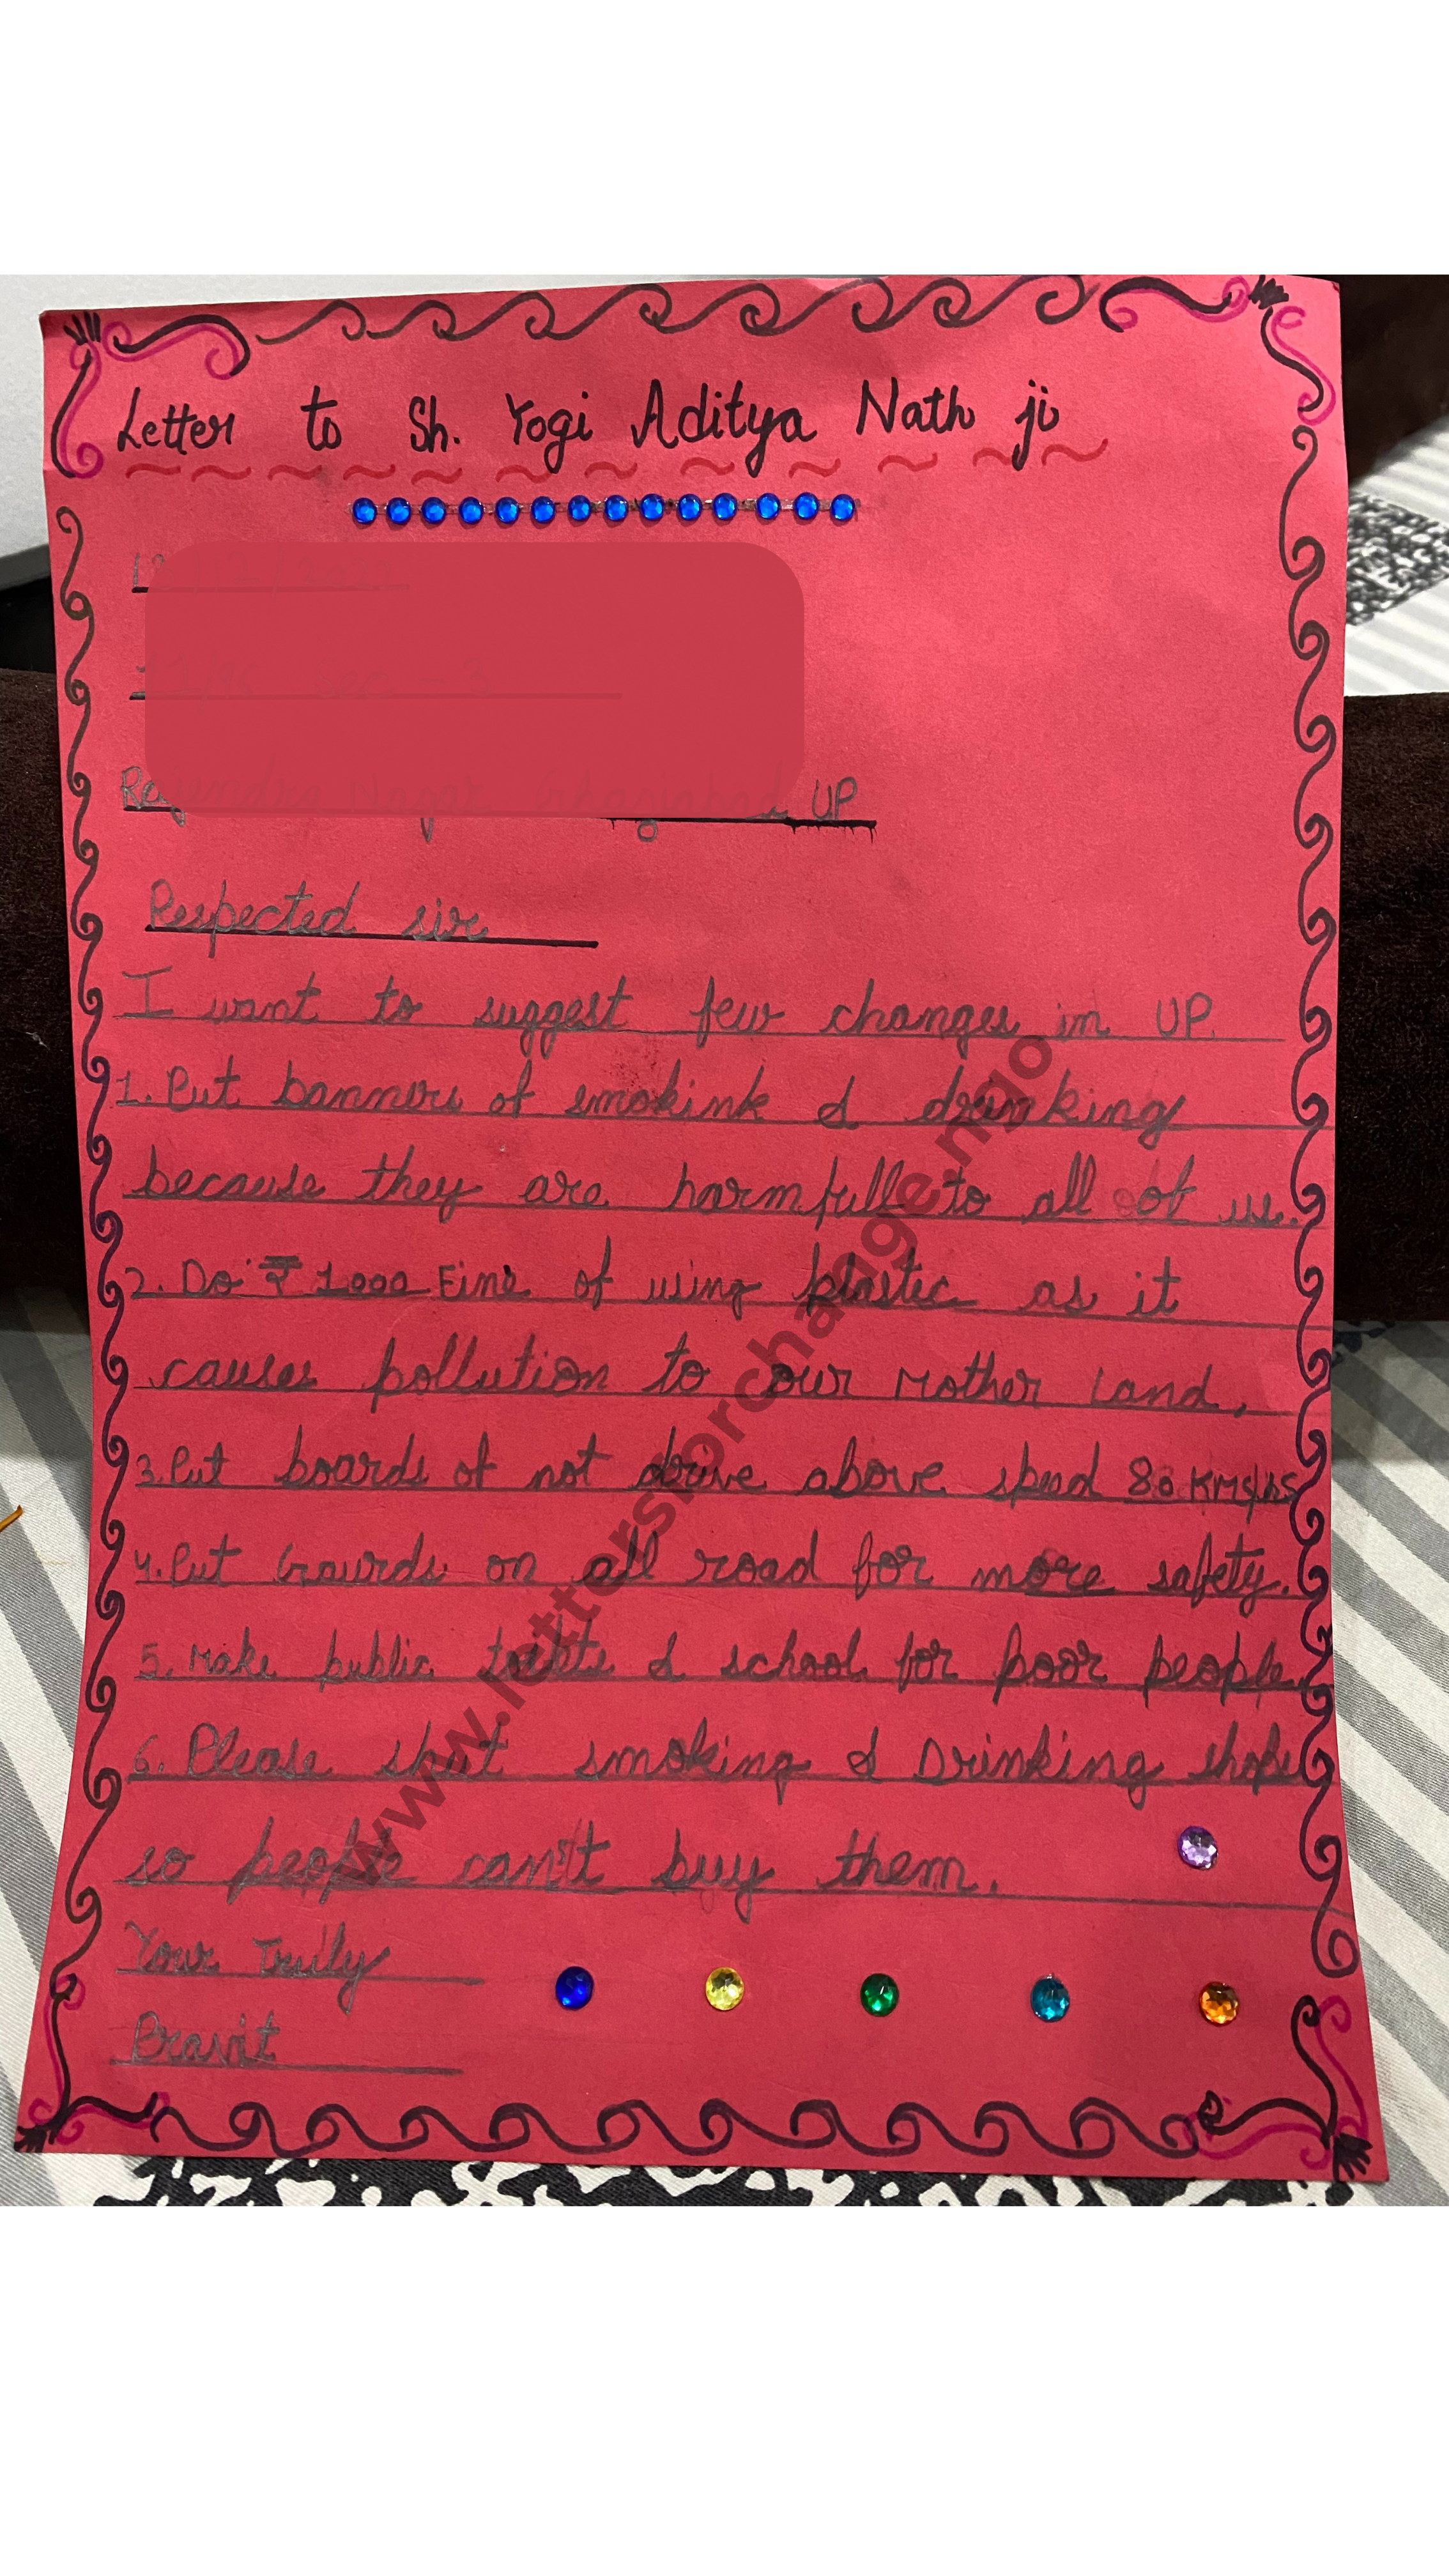 Letter to Sh. Yogi Aditya Nath ji
UP
Respected sir
I want to suggest few changes in UP.
1. Put banners of smokink & drinking
because they are harmfull to all of us.
2. Do ₹ 1000 Fine of using plastic as it
causes pollution to our Mother Land,
3. Put boards of not drive above speed 80 KMS/hs
4. Put Gaurds on all road for more safety.
5. Make public toilets & school for poor people
6. Please shut smoking & Drinking shops
so people can't buy them.
Your Truly
Pravit
www.lettersforchange.ngo